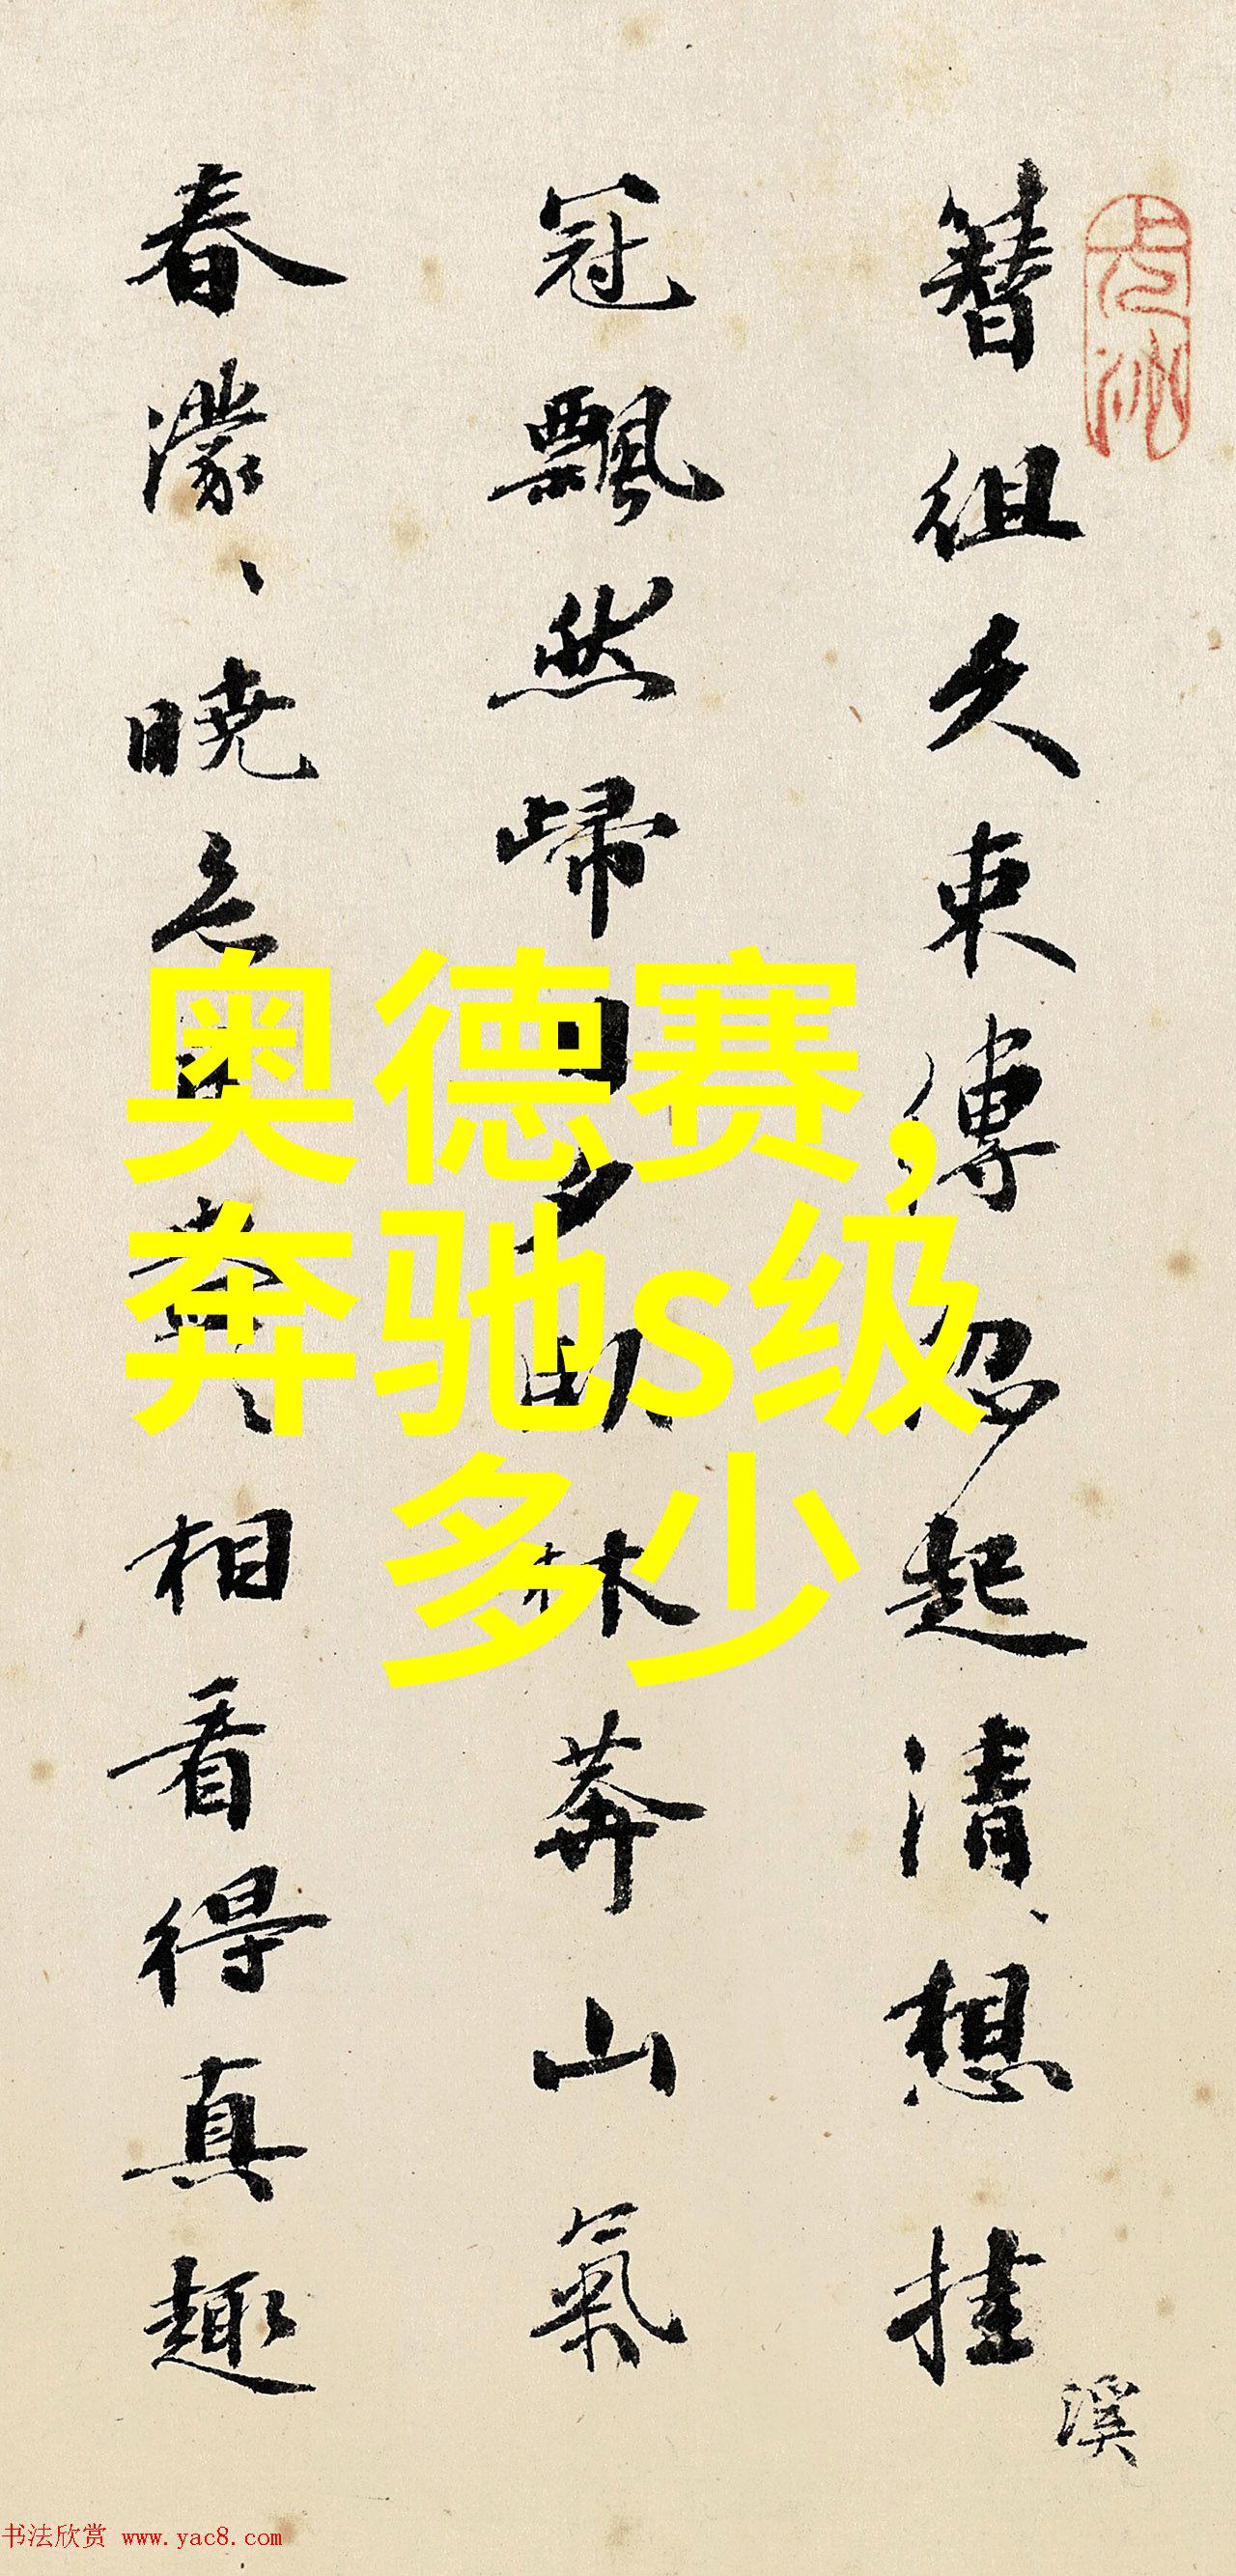 簪組久束縛忽起清想挂
溪
冠飄然歸林莽山氣
春濛、曉相看得真趣
奥德赛,
奔驰s级
多少
书法欣赏 www.yac8.com